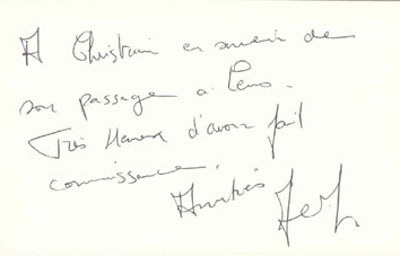 A Christian en souvenir de
son passage a Lens.
Très Heureux d'avoir fait
connaissance.
Amitiés